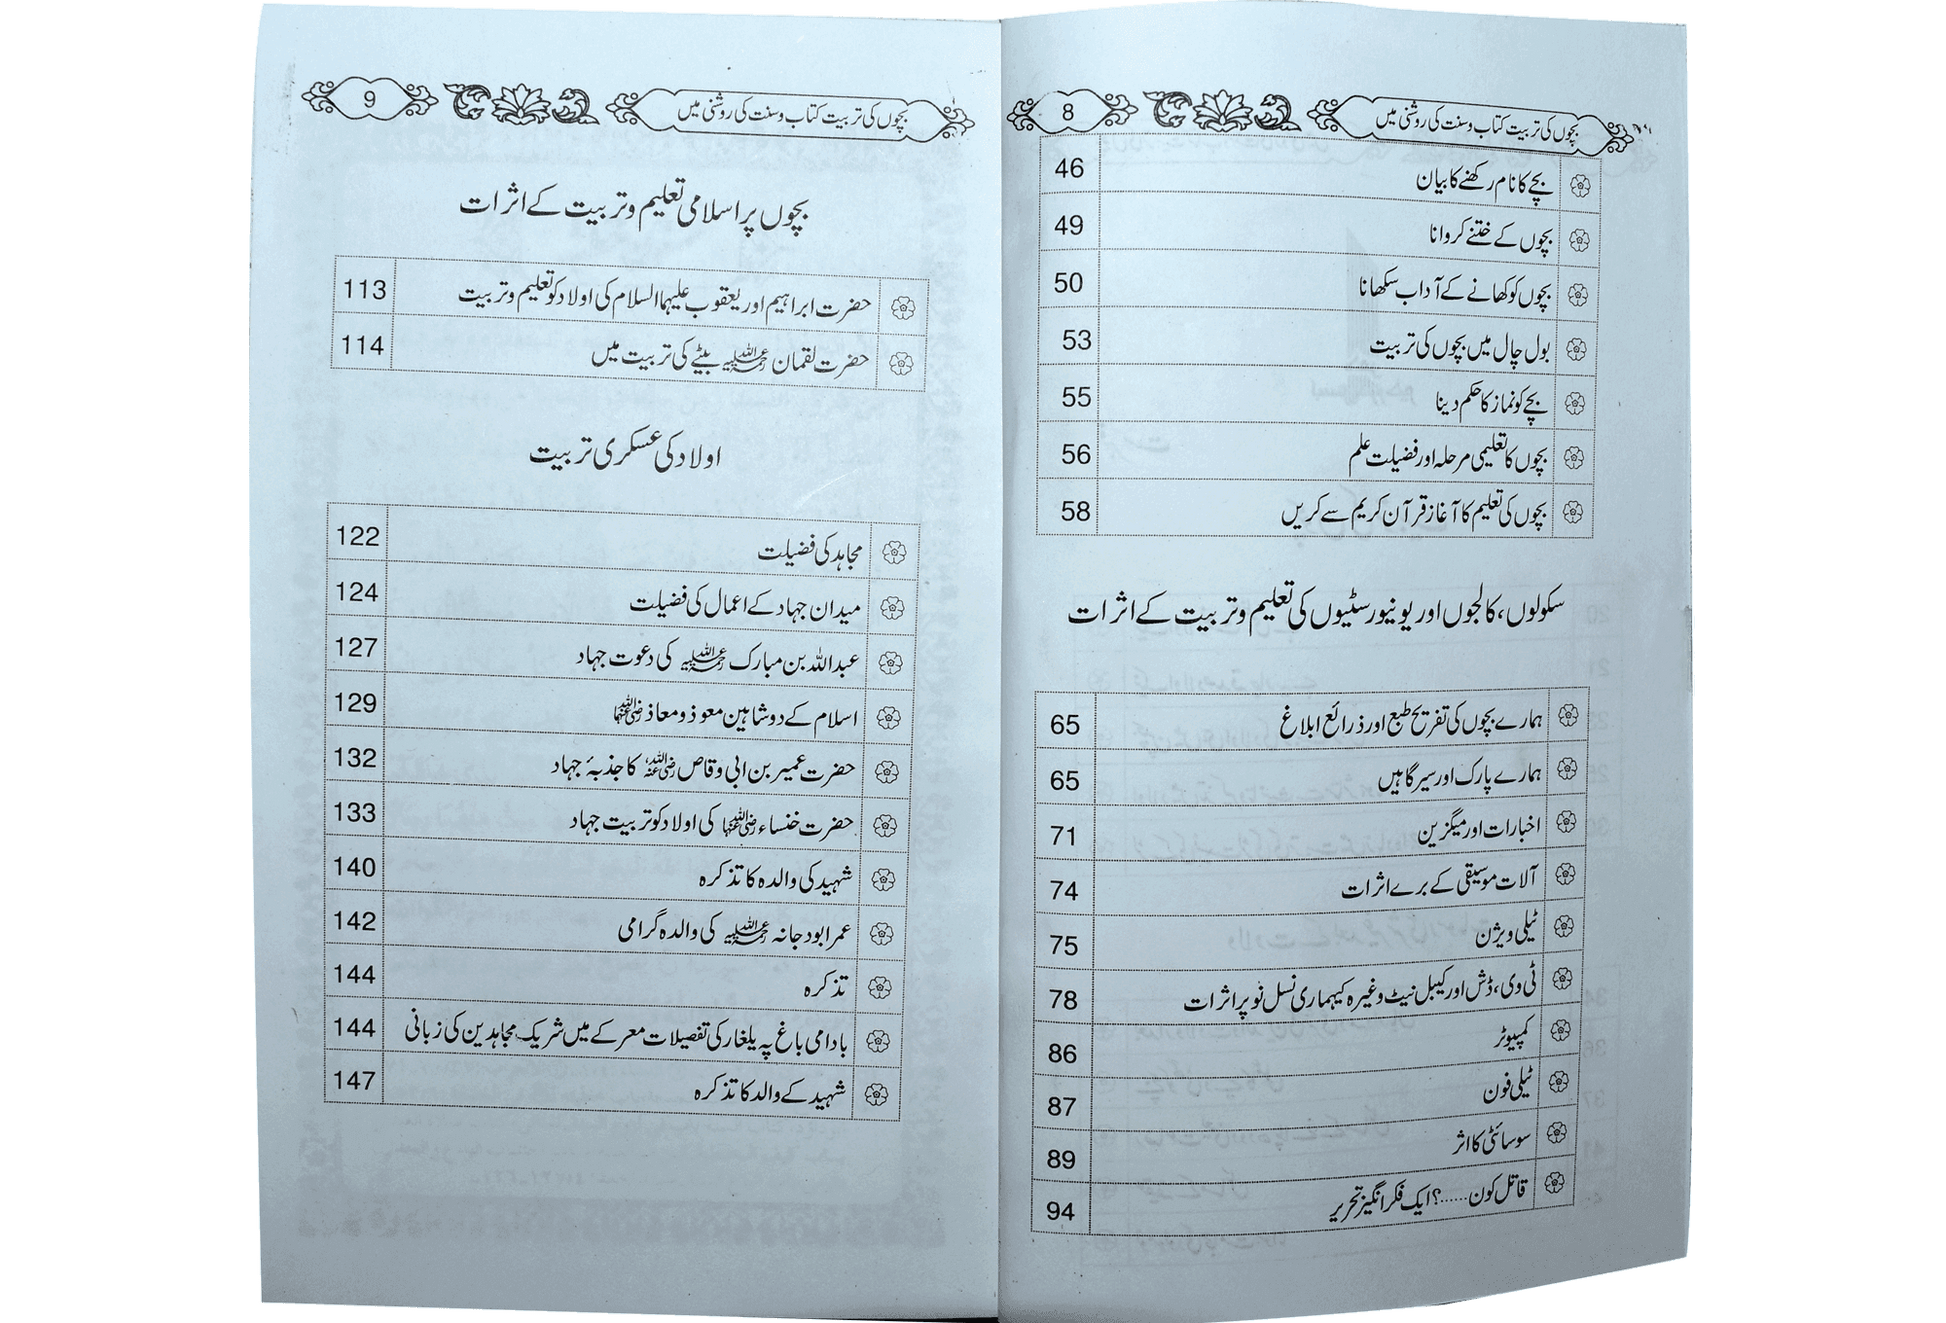 بچوں کی تربیت کتاب و سنت کی روشنی میں 8
بچے کا نام رکھنے کا بیان 46
بچوں کے ختنے کروانا 49
بچوں کو کھانے کے آداب سکھانا 50
بول چال میں بچوں کی تربیت 53
بچے کو نماز کا حکم دینا 55
بچوں کا تعلیمی مرحلہ اور فضیلت علم 56
بچوں کی تعلیم کا آغاز قرآن کریم سے کریں 58
سکولوں، کالجوں اور یونیورسٹیوں کی تعلیم و تربیت کے اثرات
ہمارے بچوں کی تفریح طبع اور ذرائع ابلاغ 65
ہمارے پارک اور سیر گاہیں 65
اخبارات اور میگزین 71
آلات موسیقی کے برے اثرات 74
ٹیلی ویژن 75
ٹی وی، ڈش اور کیبل نیٹ وغیرہ کیہماری نسل نو پر اثرات 78
کمپیوٹر 86
ٹیلی فون 87
سوسائٹی کا اثر 89
قاتل کون ......؟ ایک فکر انگیز تحریر 94
بچوں کی تربیت کتاب و سنت کی روشنی میں 9
بچوں پر اسلامی تعلیم و تربیت کے اثرات
حضرت ابراہیم اور یعقوب علیہما السلام کی اولاد کو تعلیم و تربیت 113
حضرت لقمان رحمۃ اللہ علیہ بیٹے کی تربیت میں 114
اولاد کی عسکری تربیت
مجاہد کی فضیلت 122
میدان جہاد کے اعمال کی فضیلت 124
عبداللہ بن مبارک رحمۃ اللہ علیہ کی دعوت جہاد 127
اسلام کے دو شاہین معوذ و معاذ رضی اللہ عنہما 129
حضرت عمیر بن ابی وقاص رضی اللہ عنہ کا جذبۂ جہاد 132
حضرت خنساء رضی اللہ عنہا کی اولاد کو تربیت جہاد 133
شہید کی والدہ کا تذکرہ 140
عمر ابودجانہ رحمۃ اللہ علیہ کی والدہ گرامی 142
تذکرہ 144
بادامی باغ پہ یلغار کی تفصیلات معرکے میں شریک مجاہدین کی زبانی 144
شہید کے والد کا تذکرہ 147